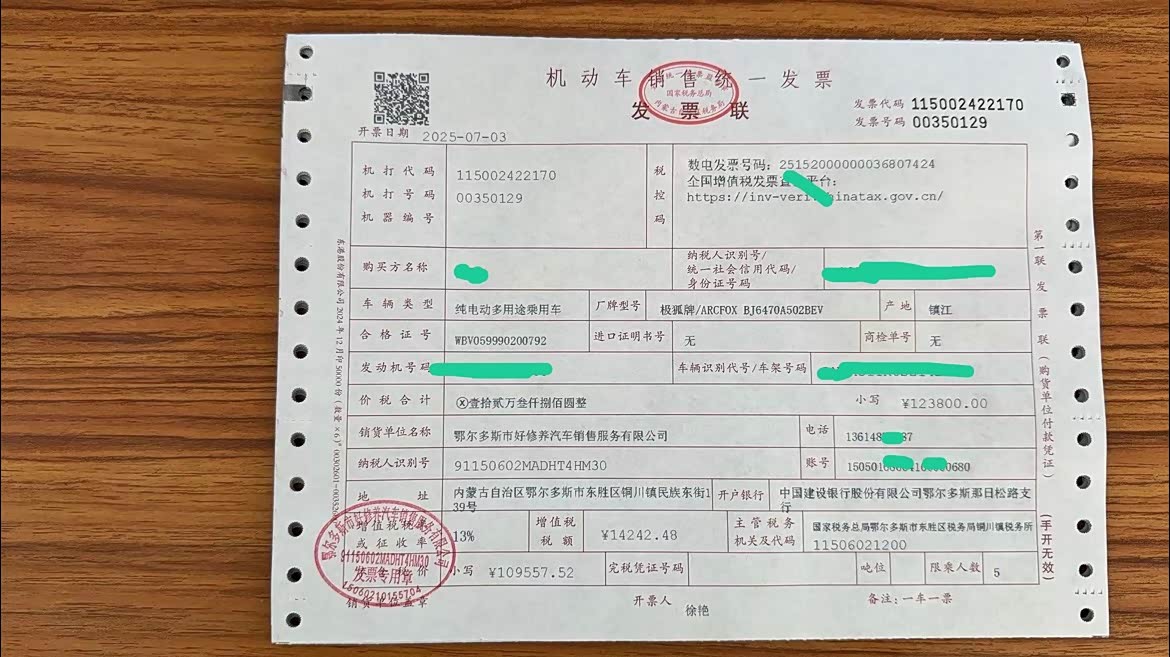 机动车销售统一发票
发票联
发票代码 115002422170
发票号码 00350129
开票日期 2025-07-03
机打代码 115002422170
机打号码 00350129
机器编号
税控码
数电发票号码：25152000000036807424
全国增值税发票查 平台：
https://inv-veri hinatax.gov.cn/
购买方名称
纳税人识别号/
统一社会信用代码/
身份证号码
车辆类型 纯电动多用途乘用车 厂牌型号 极狐牌/ARCFOX BJ6470A502BEV 产地 镇江
合格证号 WBV059990200792 进口证明书号 无 商检单号 无
发动机号码 车辆识别代号/车架号码
价税合计 ⓧ壹拾贰万叁仟捌佰圆整 小写 ¥123800.00
销货单位名称 鄂尔多斯市好修养汽车销售服务有限公司 电话 136148 37
纳税人识别号 91150602MADHT4HM30 账号 680
地址 内蒙古自治区鄂尔多斯市东胜区铜川镇民族东街1
39号
开户银行 中国建设银行股份有限公司鄂尔多斯那日松路支
行
增值税税率
或征收率 13% 增值税
税额 ¥14242.48 主管税务
机关及代码 国家税务总局鄂尔多斯市东胜区税务局铜川镇税务所
11506021200
不含税价 小写 ¥109557.52 完税凭证号码 吨位 限乘人数 5
销货单位盖章 开票人 徐艳 备注：一车一票
第一联 发票联（购货单位付款凭证）（手开无效）
东港股份有限公司2024年12月印50000份（数量×6）
国家税务总局
鄂尔多斯市好修养汽车销售服务有限公司
91150602MADHT4HM30
发票专用章
15060210155704